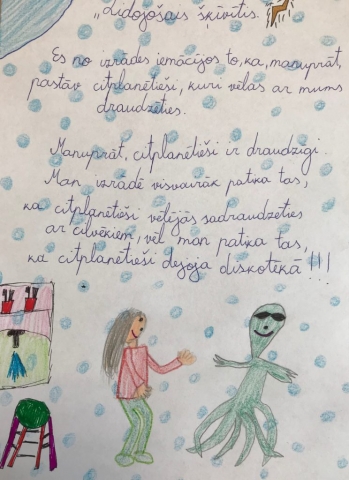 "Lidojošais šķīvītis.
Es no izrādes iemācījos to, ka, manuprāt,
pastāv citplanētieši, kuri vēlas ar mums
draudzēties.
Manuprāt, citplanētieši ir draudzīgi.
Man izrādē visvairāk patika tas,
ka citplanētieši vēlējās sadraudzēties
ar cilvēkiem, vēl man patika tas,
ka citplanētieši dejoja diskotekā!!!